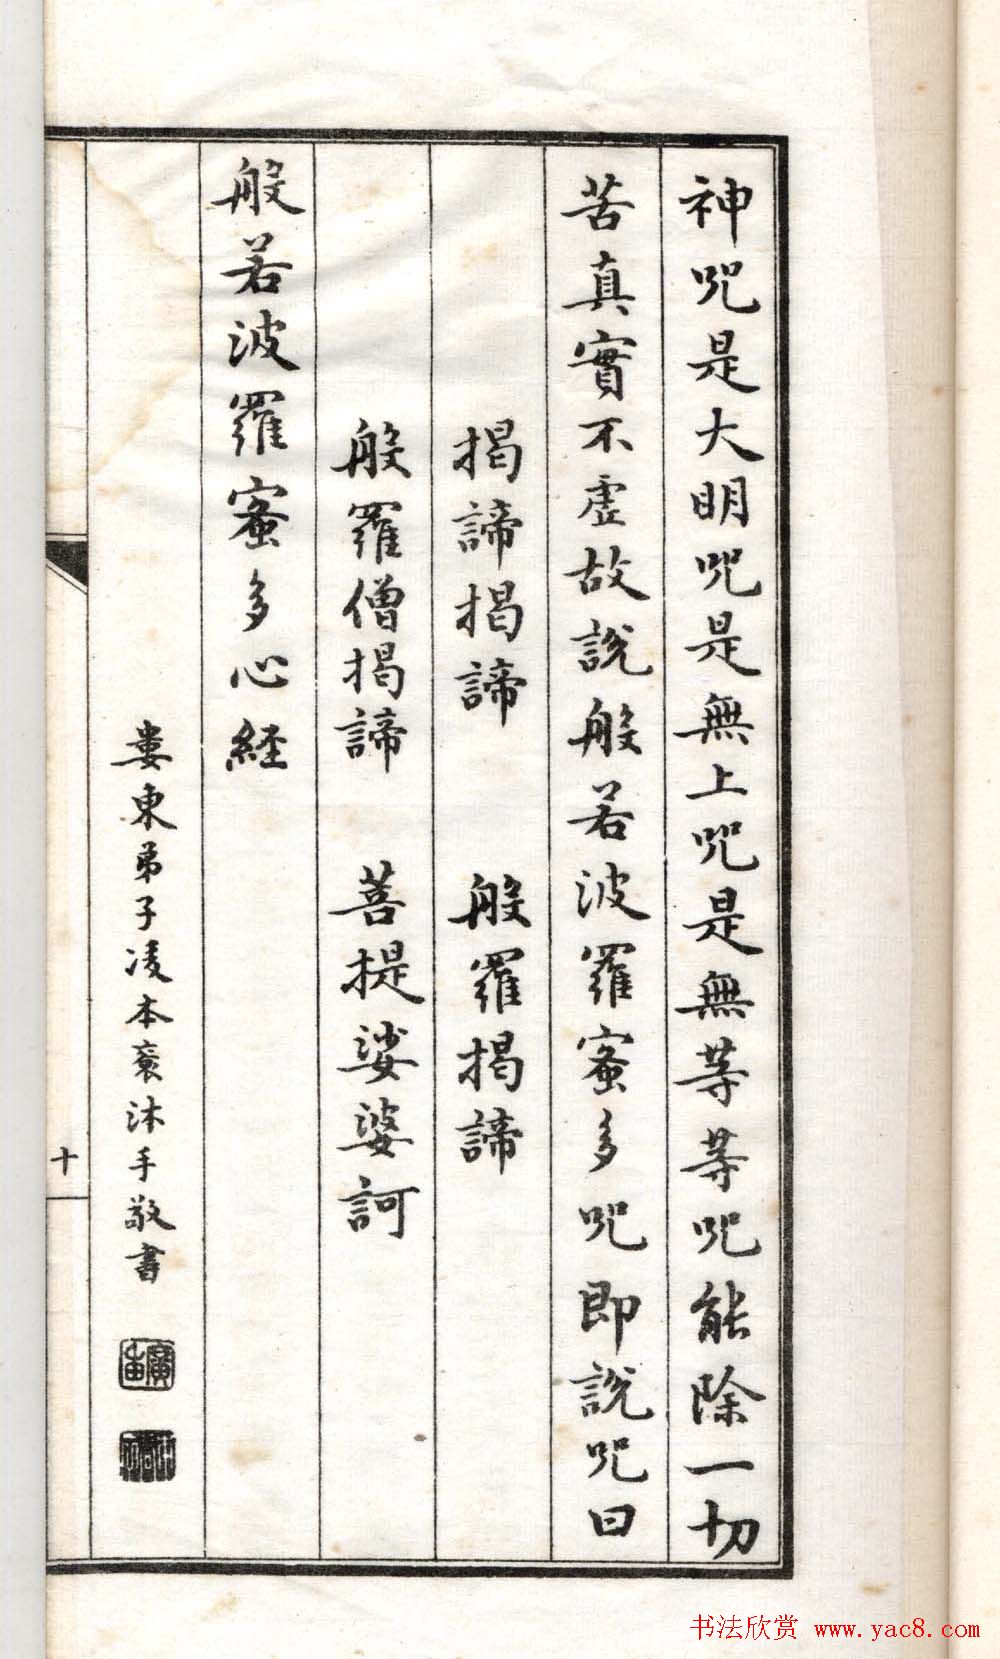 神咒是大明咒是無上咒是無等等咒能除一切
苦真實不虛故說般若波羅蜜多咒即說咒曰
揭諦揭諦　般羅揭諦
般羅僧揭諦　菩提娑婆訶
般若波羅蜜多心経
婁東弟子凌本裒沐手敬書
十
书法欣赏 www.yac8.com